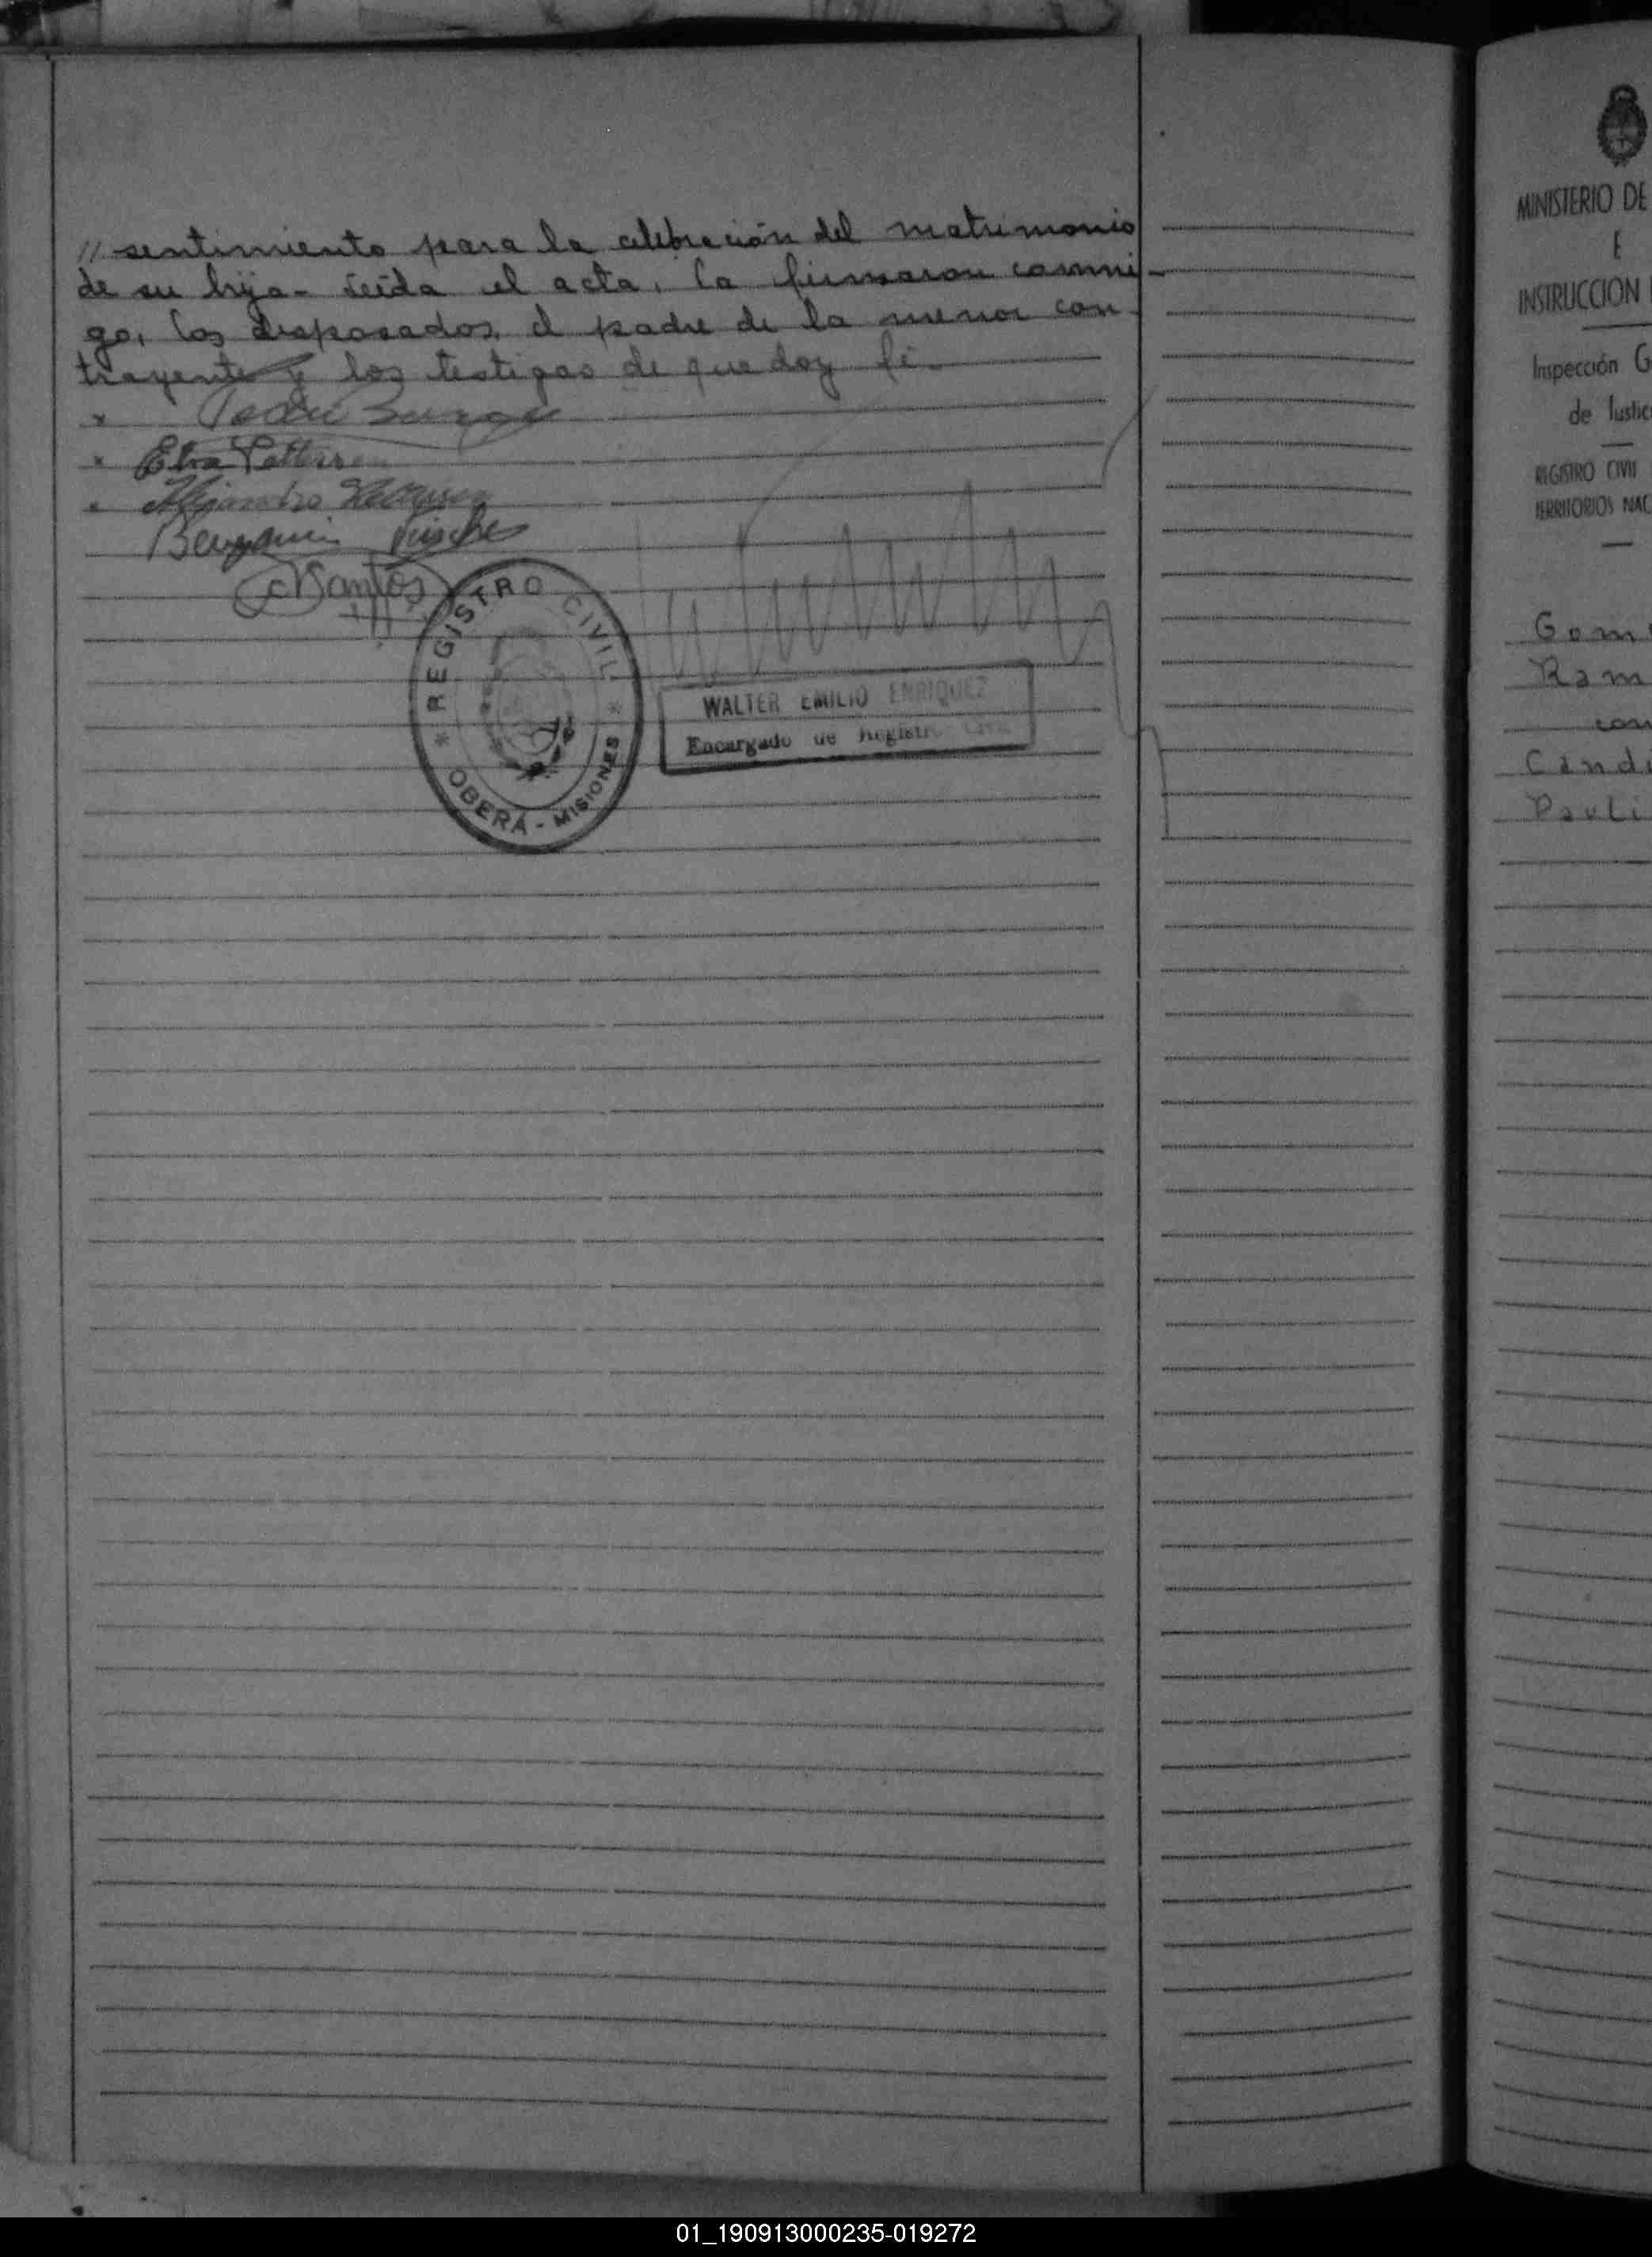 // sentimiento para la celebración del matrimonio
de su hija - Leída el acta, la firmaron conmi-
go, los desposados, el padre de la menor con-
trayente y los testigos de que doy fé.
x Pedro
x Elva
x Alejandro
Benjamin
Santos
REGISTRO CIVIL
* OBERÁ - MISIONES *
WALTER EMILIO ENRIQUEZ
Encargado de Registro Civil
MINISTERIO DE
E
INSTRUCCION
Inspección G
de Justic
REGISTRO CIVIL
TERRITORIOS NAC
Gom
Ram
con
Candi
Pauli
01_190913000235-019272